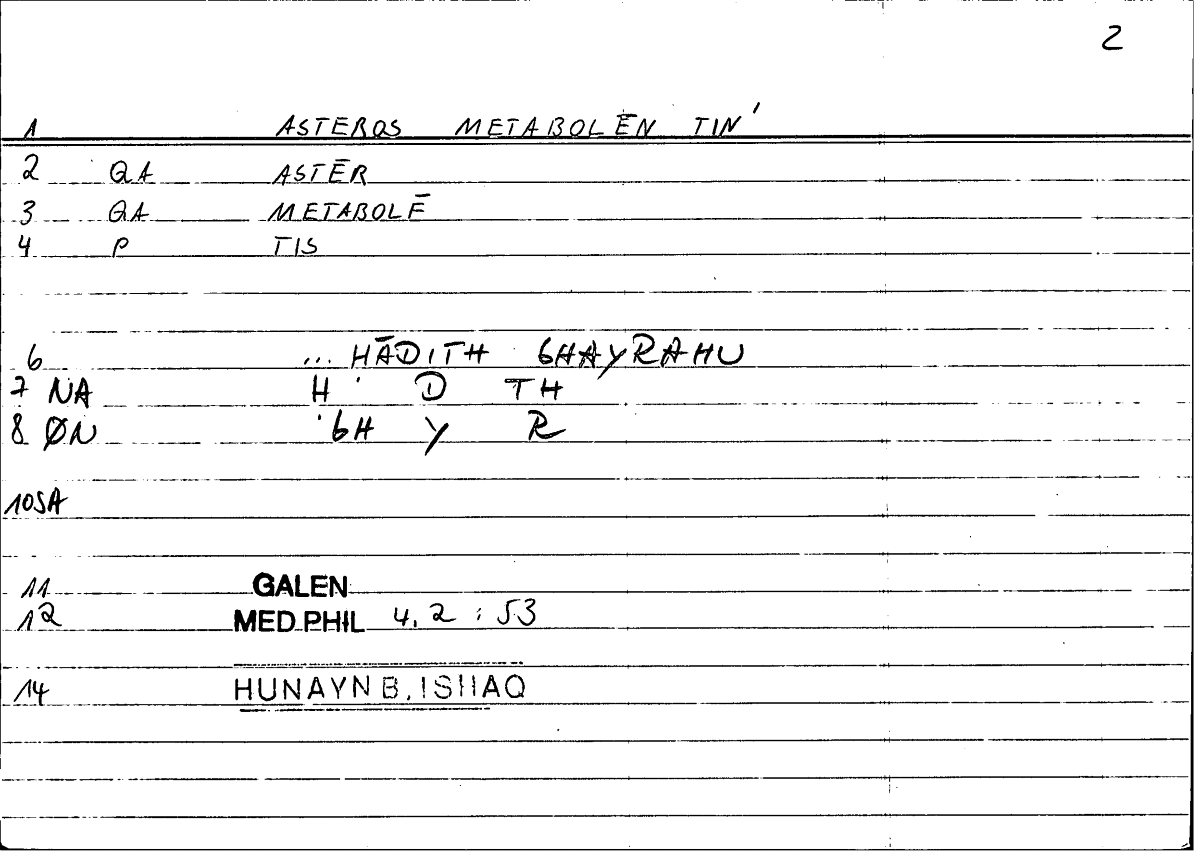 2
1 ASTEROS METABOLĒN TIN'
2 QA ASTĒR
3 QA METABOLĒ
4 P TIS
6 ... HĀDITH GHAYRAHU
7 NA H D TH
8 ØN GH Y R
10 SA
11 GALEN
12 MED.PHIL 4,2 : 53
14 HUNAYN B. ISHAQ